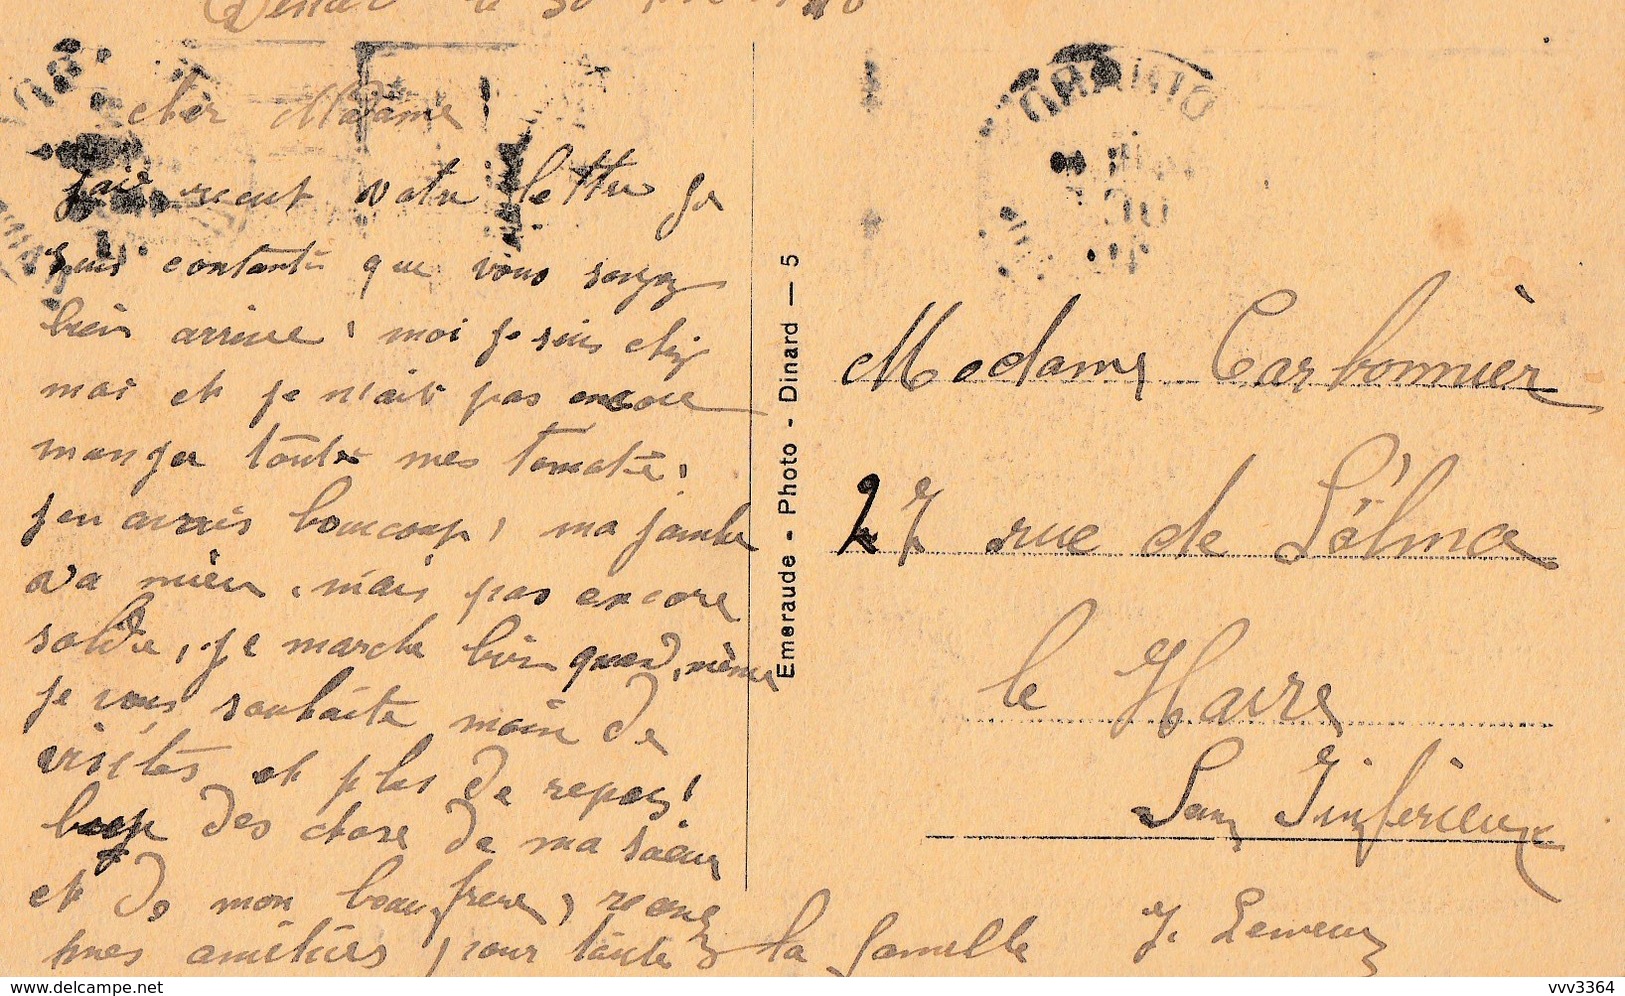 cher Madame
jais recut votre lettre je
suis contante que vous soyez
bien arrivee, moi je suis chez
moi et je n'ait pas encore
manger toute mes tomate,
j'en avais boucoup, ma jambe
va mieu, mais pas encore
solide, je marche bien quand même
je vous souhaite moin de
visites et plus de repos!
des chose de ma sœur
et de mon beau frere, recevez
mes amitiers pour toute la famille
J. Lemeur
Emeraude - Photo - Dinard — 5
Madame Carbonnier
27 rue de L'alma
le Havre
Inferieur
delcampe.net
vvv3364